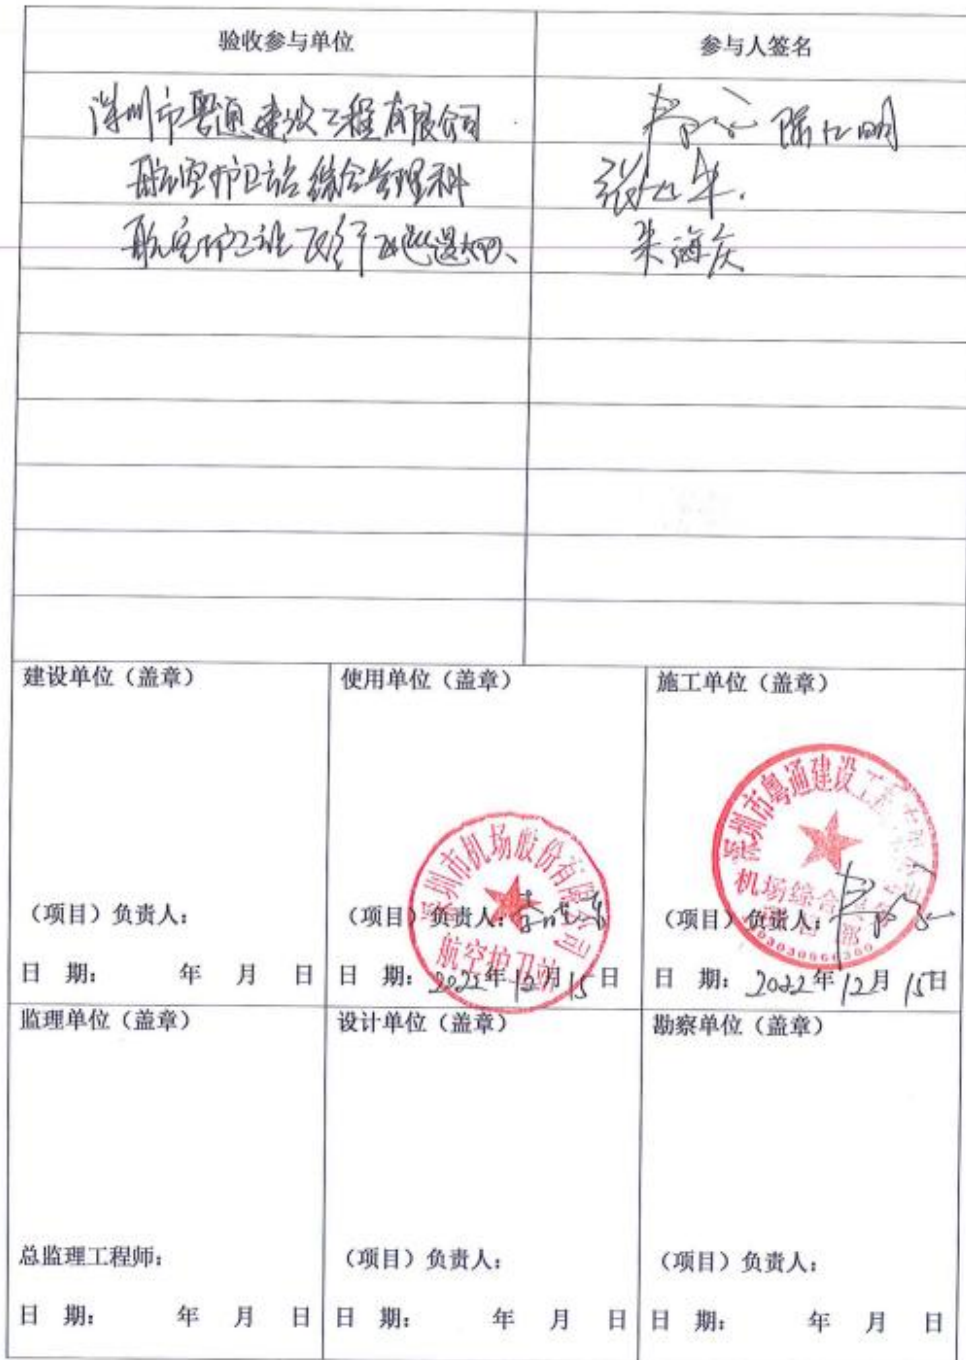 验收参与单位 参与人签名
深圳市粤通建设工程有限公司 陈仁明
航空护卫站综合管理科 张
航空护卫站飞行 朱海庆
建设单位（盖章） 使用单位（盖章） 施工单位（盖章）
深圳市机场股份有限公司
航空护卫站
深圳市粤通建设工程有限公司
机场综合
（项目）负责人： （项目）负责人： （项目）负责人：
日 期： 年 月 日 日 期：2022年12月15日 日 期：2022年12月15日
监理单位（盖章） 设计单位（盖章） 勘察单位（盖章）
总监理工程师： （项目）负责人： （项目）负责人：
日 期： 年 月 日 日 期： 年 月 日 日 期： 年 月 日